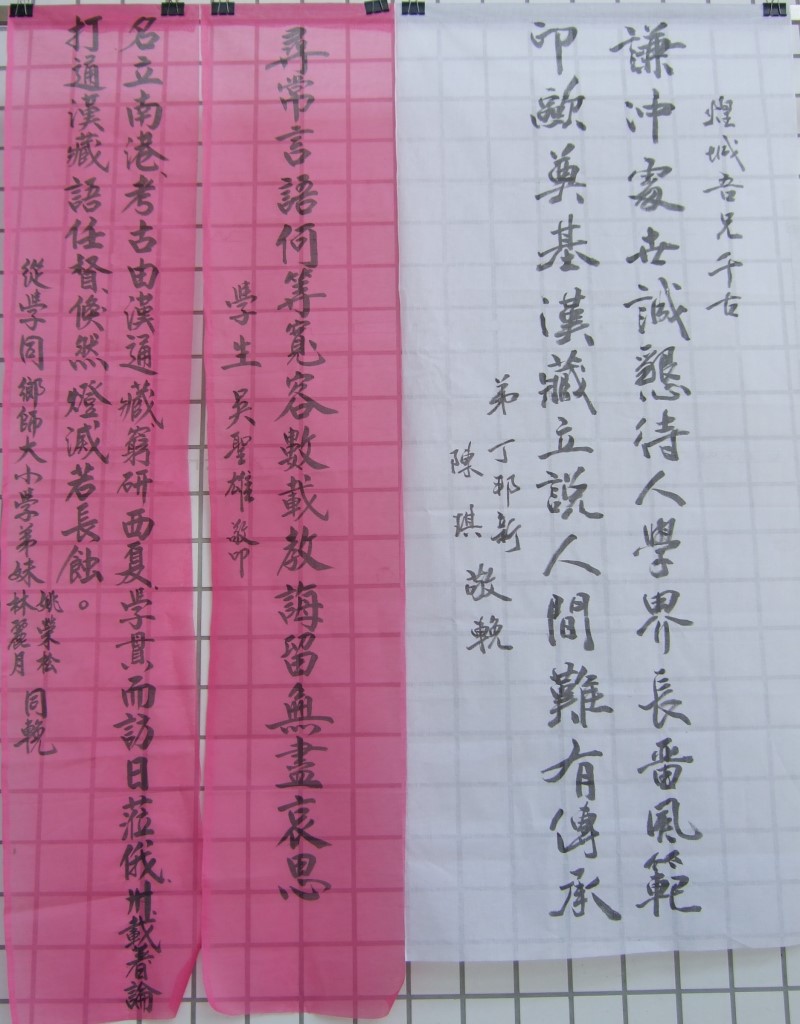 煌城吾兄千古
謙沖處世誠懇待人學界長留風範
印歐奠基漢藏立說人間難有傳承
弟丁邦新
陳琪敬輓
尋常言語何等寬容數載教誨留無盡哀思
學生吳聖雄敬叩
名立南港、考古由漢通藏窮研西夏、學貫而訪日蒞俄、卅載着論
打通漢藏語任督、倏然燈滅若長蝕。
從学同鄉師大小学弟妹
姚榮松
林麗月
同輓